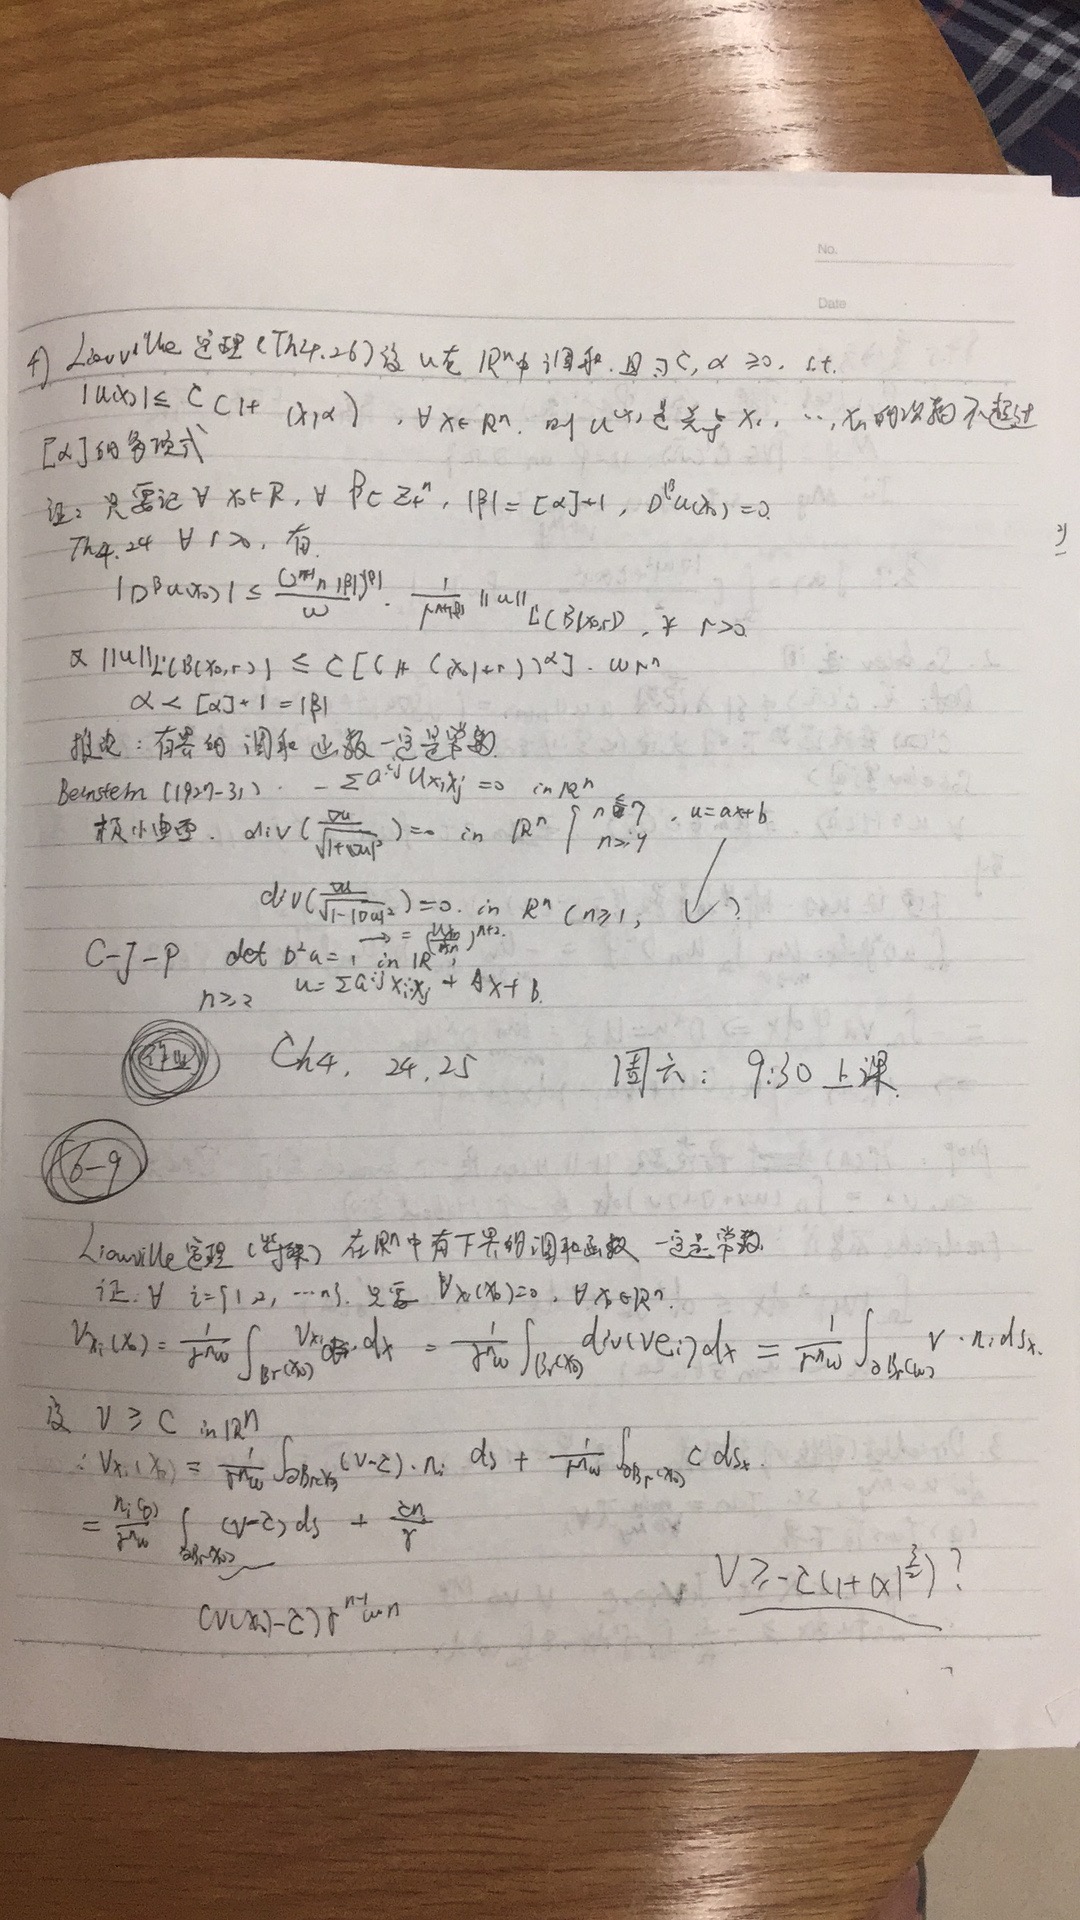 No.
Date
4) Liouville 定理 (Th4.26) 设 u 在 ℝⁿ中调和. 且∃C, α ≥0. s.t.
|u(x)| ≤ C (1+ |x|^α) , ∀x∈ℝⁿ. 则 u(x) 是关于 x₁, …, xₙ的次数不超过
[α]的多项式
证: 只需记 ∀ x₀∈R, ∀ β∈Z₊ⁿ, |β|=[α]+1, D^βu(x₀)=0.
Th4.24 ∀ r>0, 有.
|D^βu(x₀)| ≤ (2ⁿ⁺¹n|β|)^|β| / ω · 1/r^(n+|β|) ||u||_L¹(B(x₀,r)) , ∀ r>0
又 ||u||_L¹(B(x₀,r)) ≤ C[1+ (|x₀|+r)^α] · ωrⁿ
α < [α]+1 = |β|
推论: 有界的调和函数一定是常数.
Bernstein (1927-31). -Σa^ij u_xixj =0 in ℝⁿ
极小曲面. div(∇u/√(1+|∇u|²))=0 in ℝⁿ { n≤7 , u=ax+b
n≥
div(∇u/√(1-|∇u|²))=0. in ℝⁿ (n≥1, ?
C-J-P det D²u=1, in ℝⁿ,
n≥2 u=Σa^ij xixj + Ax+B.
作业 Ch4. 24.25 周六: 9:30 上课.
6-9
Liouville 定理 在ℝⁿ中有下界的调和函数 一定是常数.
证. ∀ i={1,2,…n}. 只需 V_xi(x₀)=0, ∀x₀∈ℝⁿ.
V_xi(x₀) = 1/(rⁿω) ∫_Br(x₀) V_xi dx = 1/(rⁿω) ∫_Br(x₀) div(Ve_i)dx = 1/(rⁿω) ∫_∂Br(x₀) V·n_i ds_x.
设 V ≥ C in ℝⁿ
∴V_xi(x₀) = 1/(rⁿω) ∫_∂Br(x₀) (V-C)·n_i ds + 1/(rⁿω) ∫_∂Br(x₀) C ds_x.
= n_i / (rⁿω) ∫_∂Br(x₀) (V-C) ds + Cn/r
(V(x₀)-C)rⁿ⁻¹ωn
V ≥ -C(1+|x|^(3/2))?